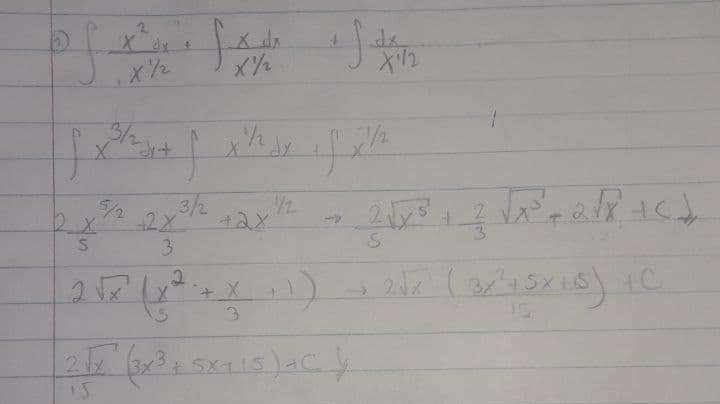 ∫ x²dx/x^1/2 + ∫ x dx/x^1/2 + ∫ dx/x^1/2
∫ x^3/2 dx + ∫ x^1/2 dx + ∫ x^-1/2
2/5 x^5/2 + 2x^3/2/3 + 2x^1/2 → 2/5 √x⁵ + 2/3 √x³ + 2√x + C
2√x (x²/5 + x/3 + 1) → 2√x (3x² + 5x + 15/15) + C
2√x/15 (3x³ + 5x + 15) + C